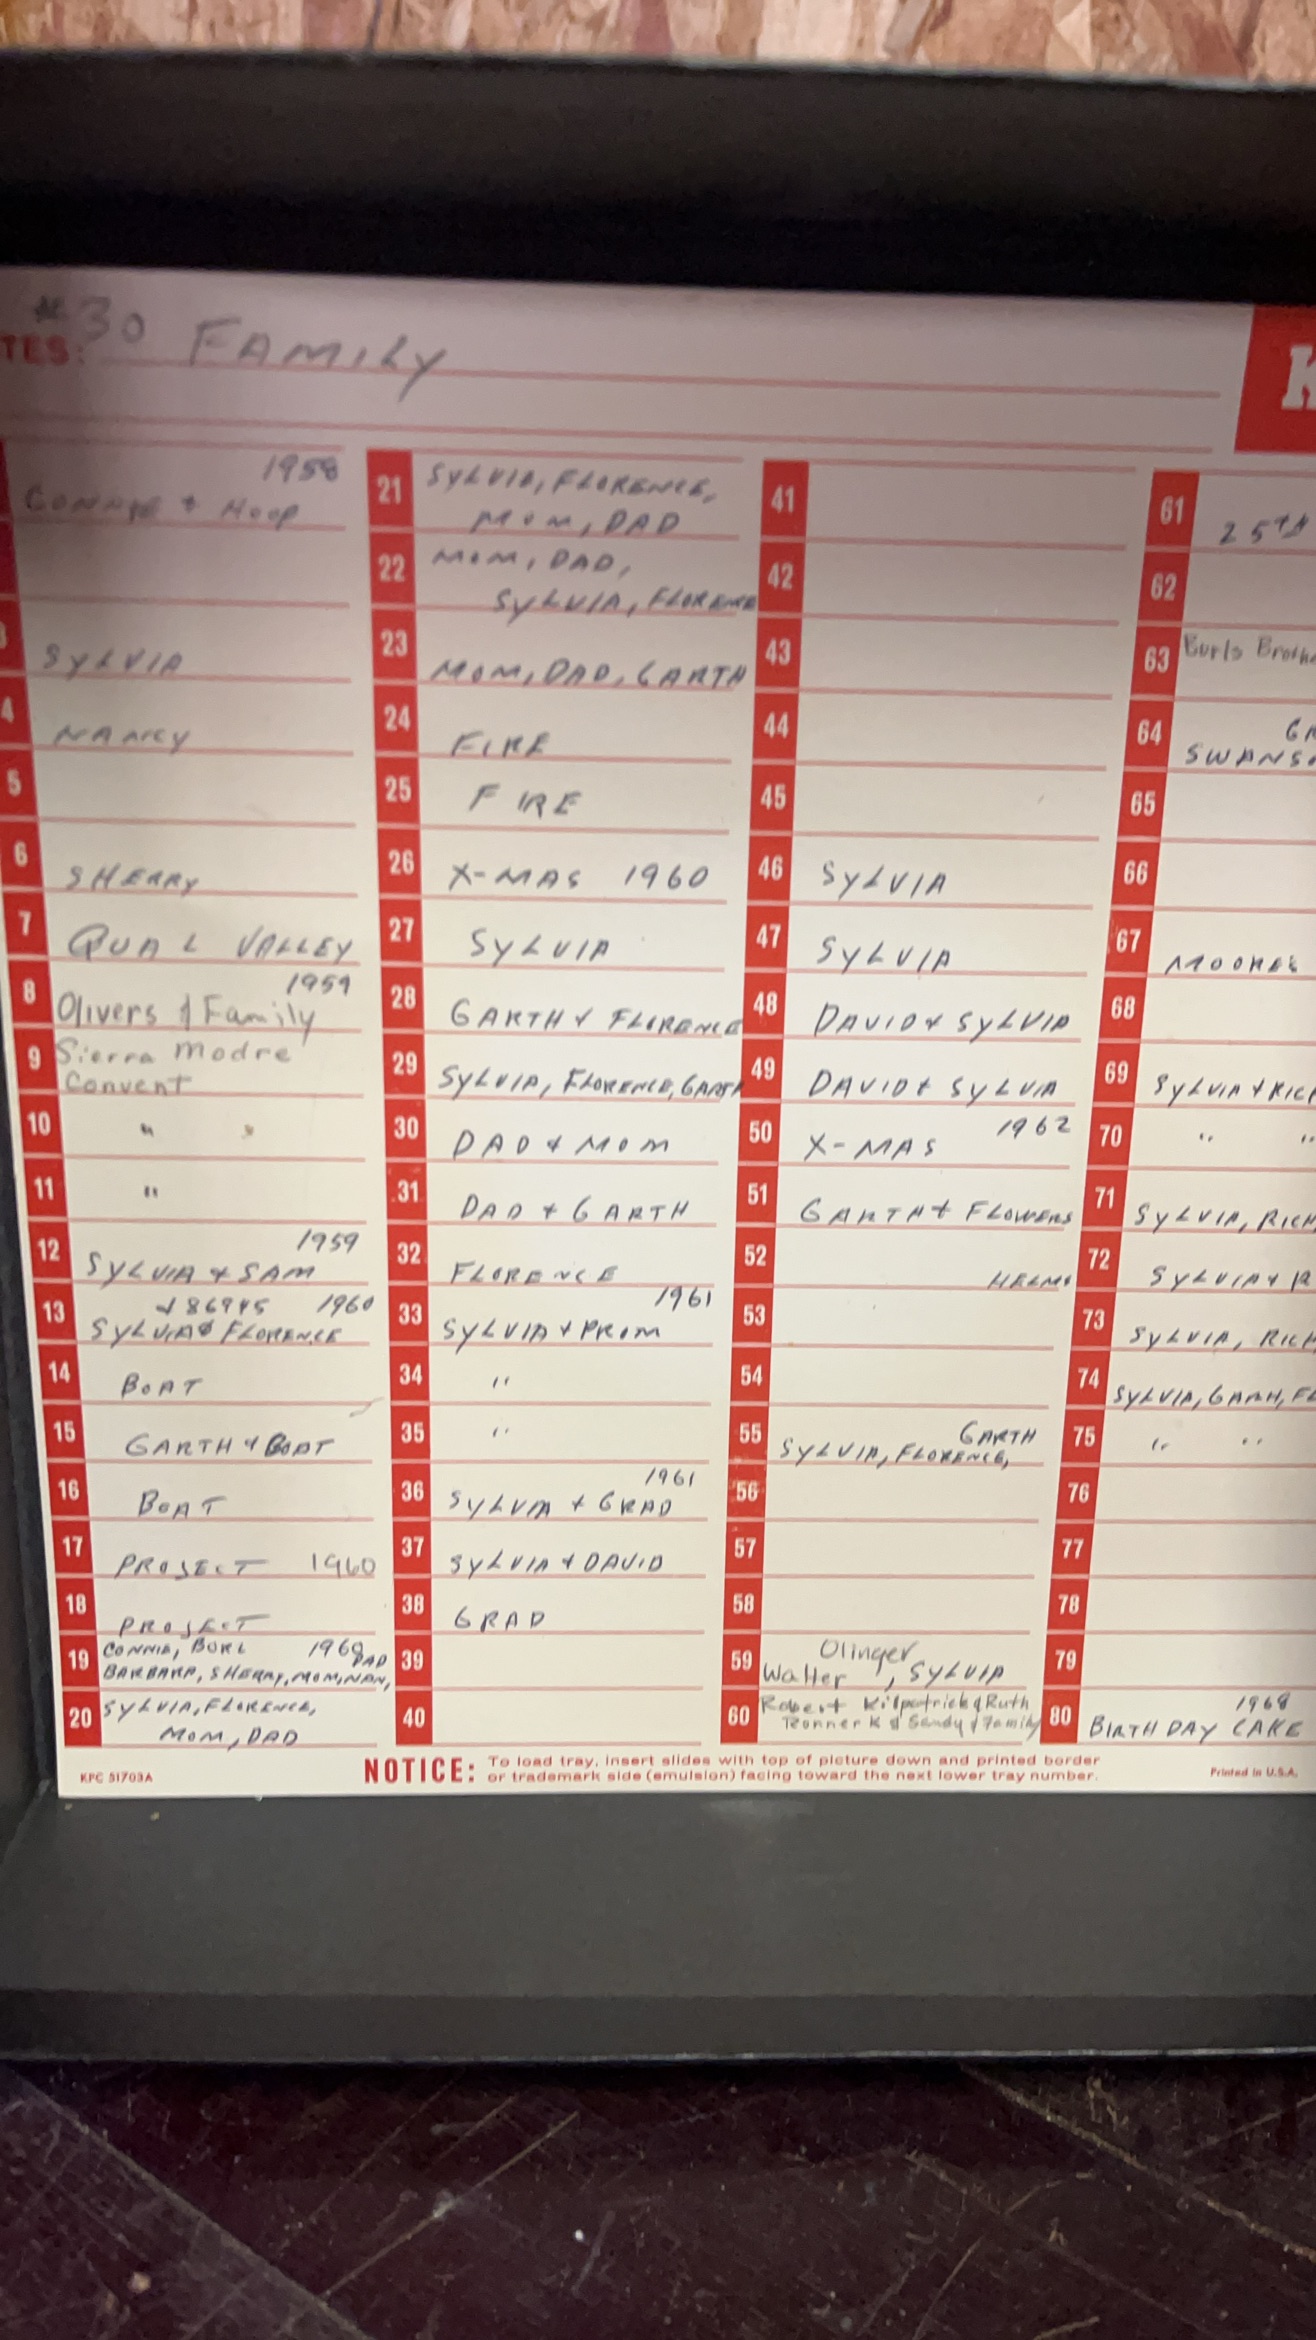 #30 FAMILY
TES:
K
1958
CONNIE + HOOP
3 SYLVIA
4 NANCY
5
6 SHERRY
7 QUAL VALLEY
8 1959
Olivers & Family
9 Sierra Modre
Convent
10 " "
11 "
12 1959
SYLVIA & SAM
13 1960
SYLVIA & FLORENCE
14 BOAT
15 GARTH & BOAT
16 BOAT
17 PROJECT 1960
18 PROJECT
19 CONNIE, BURL 1960 DAD
BARBARA, SHERRY, MOM, NAN,
20 SYLVIA, FLORENCE,
MOM, DAD
21 SYLVIA, FLORENCE,
MOM, DAD
22 MOM, DAD,
SYLVIA, FLORENCE
23 MOM, DAD, GARTH
24 FIRE
25 FIRE
26 X-MAS 1960
27 SYLVIA
28 GARTH & FLORENCE
29 SYLVIA, FLORENCE, GARTH
30 DAD & MOM
31 DAD & GARTH
32 FLORENCE
33 1961
SYLVIA & PROM
34 "
35 "
36 1961
SYLVIA & GRAD
37 SYLVIA & DAVID
38 GRAD
39
40
41
42
43
44
45
46 SYLVIA
47 SYLVIA
48 DAVID & SYLVIA
49 DAVID & SYLVIA
50 X-MAS 1962
51 GARTH & FLOWERS
52 HELMS
53
54
55 GARTH
SYLVIA, FLORENCE,
56
57
58
59 Olinger
Walter, SYLVIA
60 Robert Kilpatrick & Ruth
K & Sandy & Family
61 25TH
62
63 Burls Broth
64 GA
SWANSO
65
66
67 MOORES
68
69 SYLVIA & RICH
70 " "
71 SYLVIA, RICH
72 SYLVIA & R
73 SYLVIA, RICH
74 SYLVIA, GARH, FL
75 " "
76
77
78
79
80 1968
BIRTHDAY CAKE
KPC 51703A
NOTICE: To load tray, insert slides with top of picture down and printed border
or trademark side (emulsion) facing toward the next lower tray number.
Printed in U.S.A.